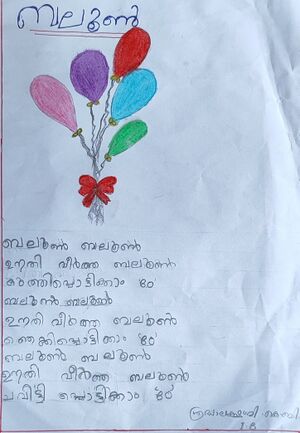 ബലൂൺ
ബലൂൺ ബലൂൺ
ഊതി വീർത്ത ബലൂൺ
കുത്തിപ്പൊട്ടിക്കാം 'ഠോ'
ബലൂൺ ബലൂൺ
ഊതി വീർത്ത ബലൂൺ
ഞെക്കിപ്പൊട്ടിക്കാം 'ഠോ'
ബലൂൺ ബലൂൺ
ഊതി വീർത്ത ബലൂൺ
ചവിട്ടി പ്പൊട്ടിക്കാം 'ഠോ'
1 B